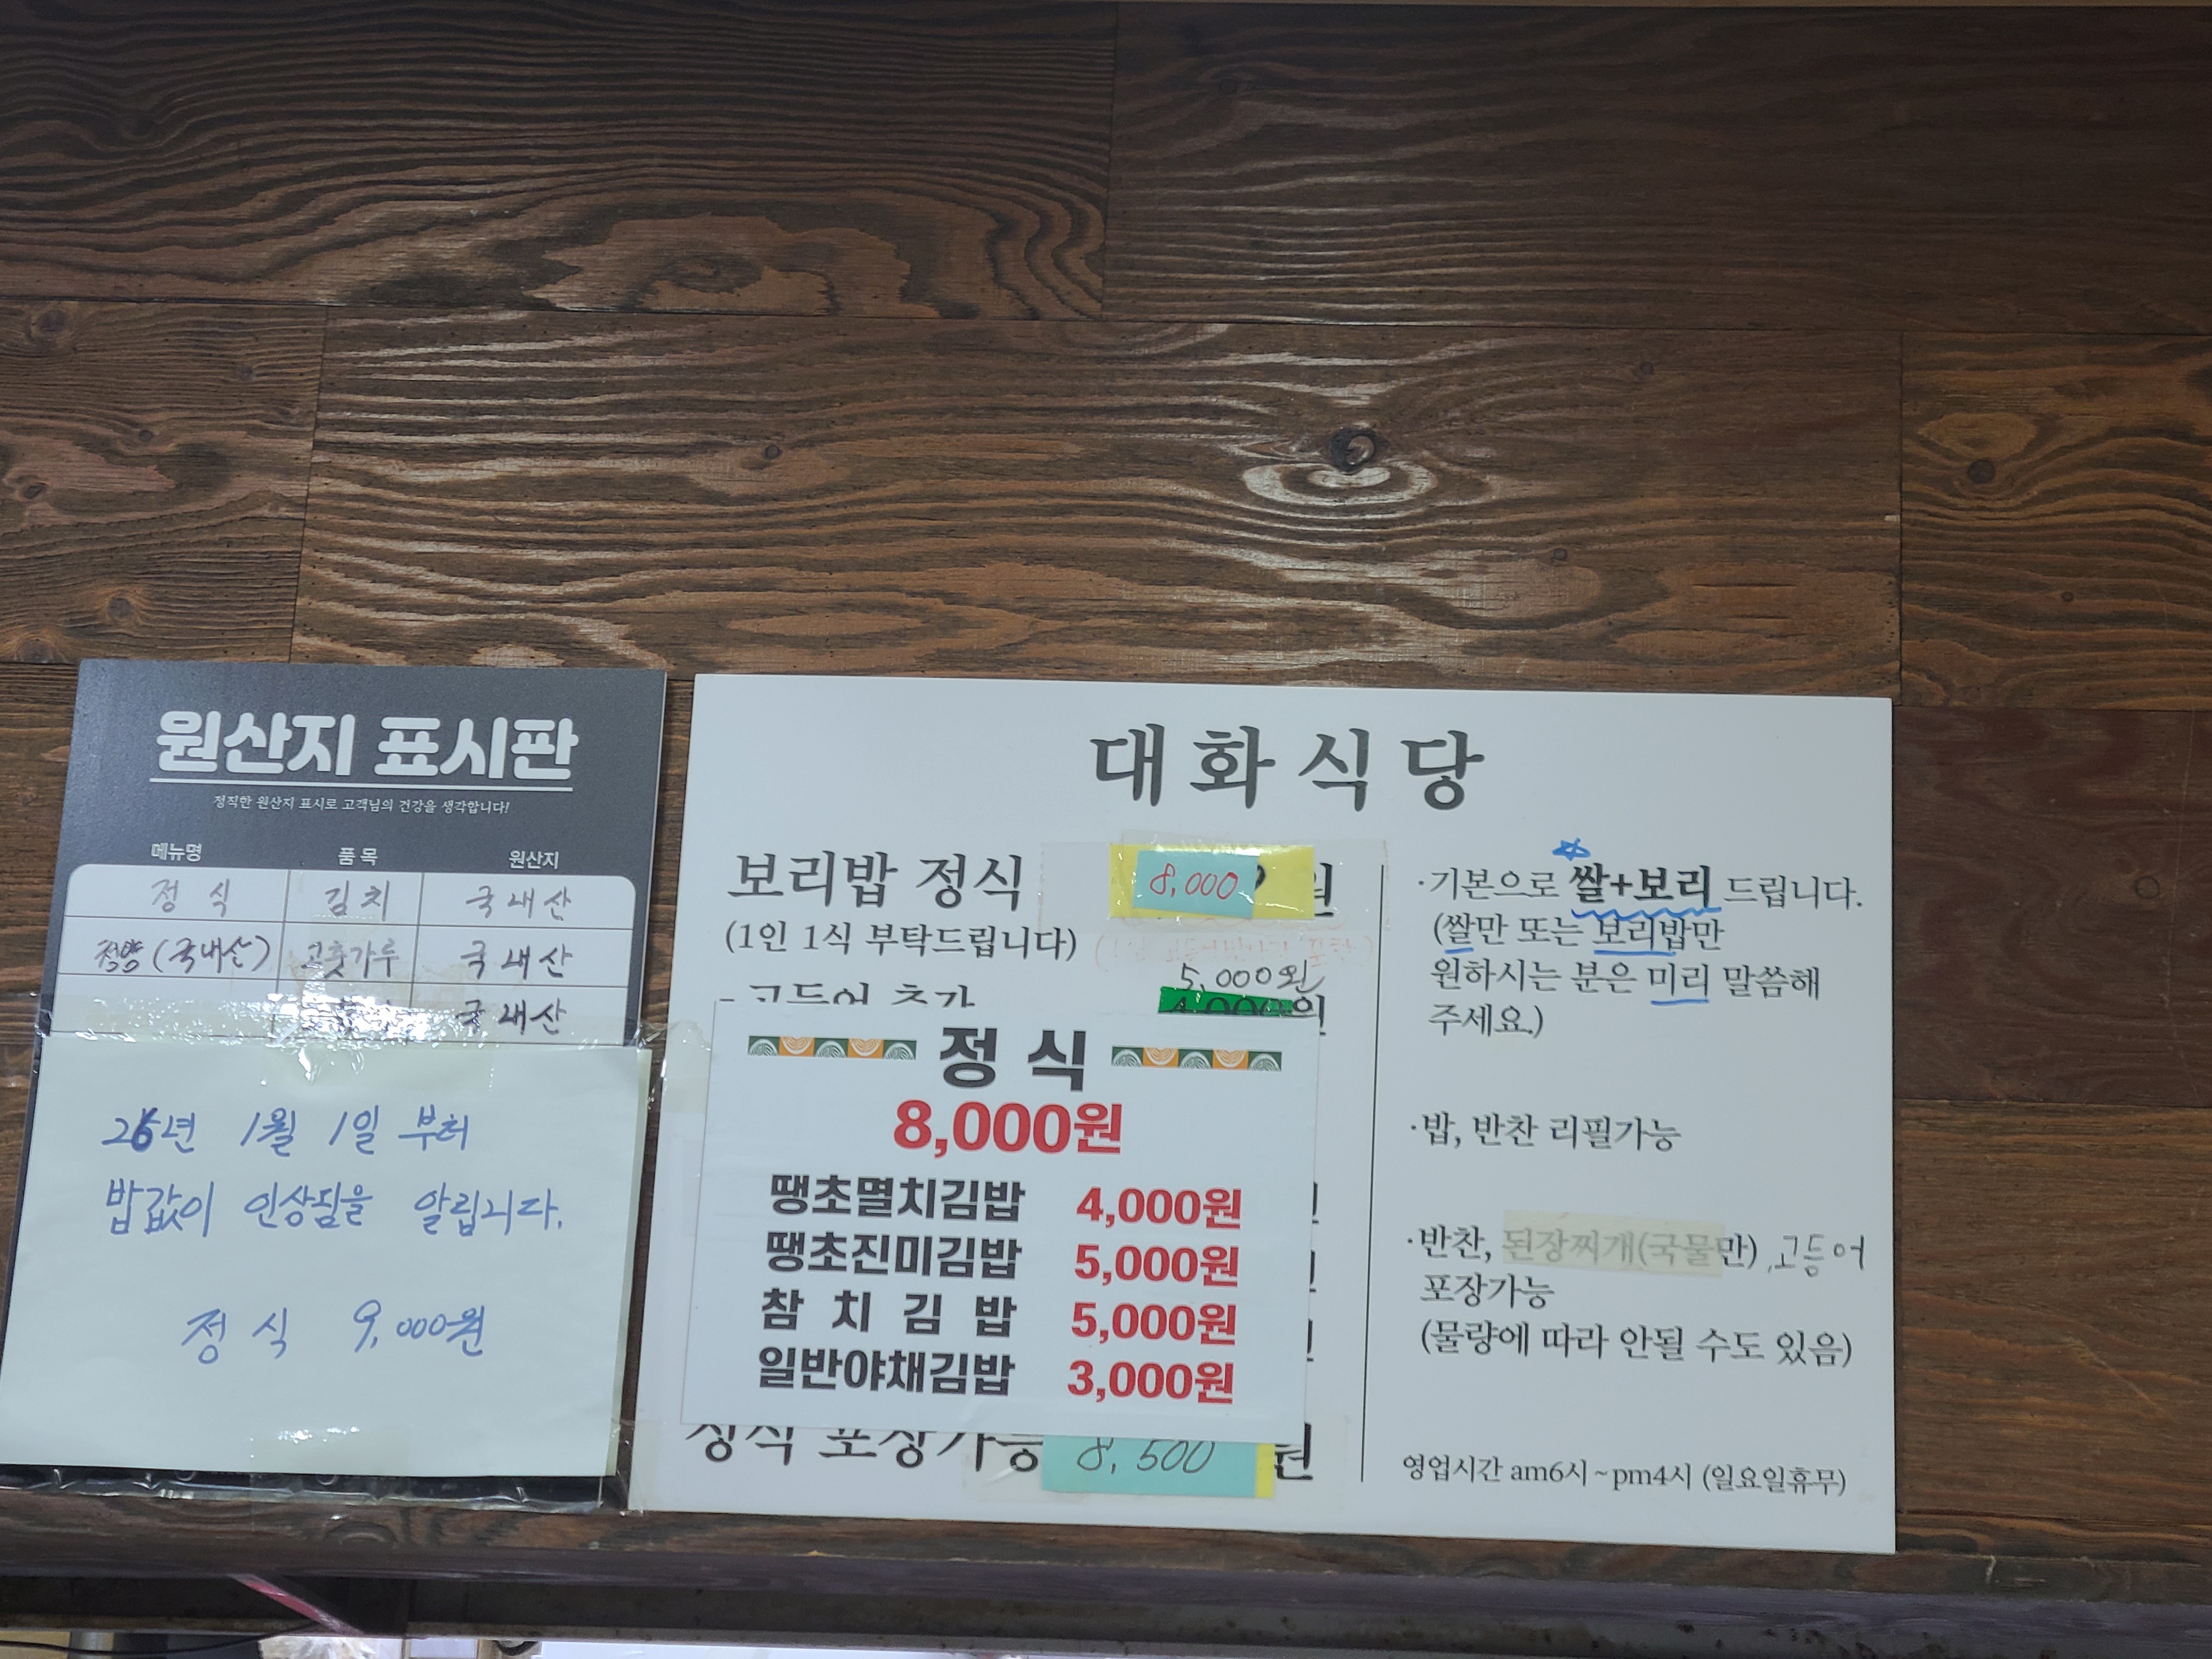 원산지 표시판
정직한 원산지 표시로 고객님의 건강을 생각합니다!
메뉴명 품목 원산지
정식 김치 국내산
(국내산) 고춧가루 국내산
국내산
26년 1월 1일 부터
밥값이 인상됨을 알립니다.
정식 9,000원
대화식당
보리밥 정식 8,000원
(1인 1식 부탁드립니다)
5,000원
- 고등어 추가 4,000원
정식
8,000원
땡초멸치김밥 4,000원
땡초진미김밥 5,000원
참치김밥 5,000원
일반야채김밥 3,000원
정식 포장가능 8,500원
·기본으로 쌀+보리 드립니다.
(쌀만 또는 보리밥만
원하시는 분은 미리 말씀해
주세요.)
·밥, 반찬 리필가능
·반찬, 된장찌개(국물만), 고등어
포장가능
(물량에 따라 안될 수도 있음)
영업시간 am6시~pm4시 (일요일휴무)